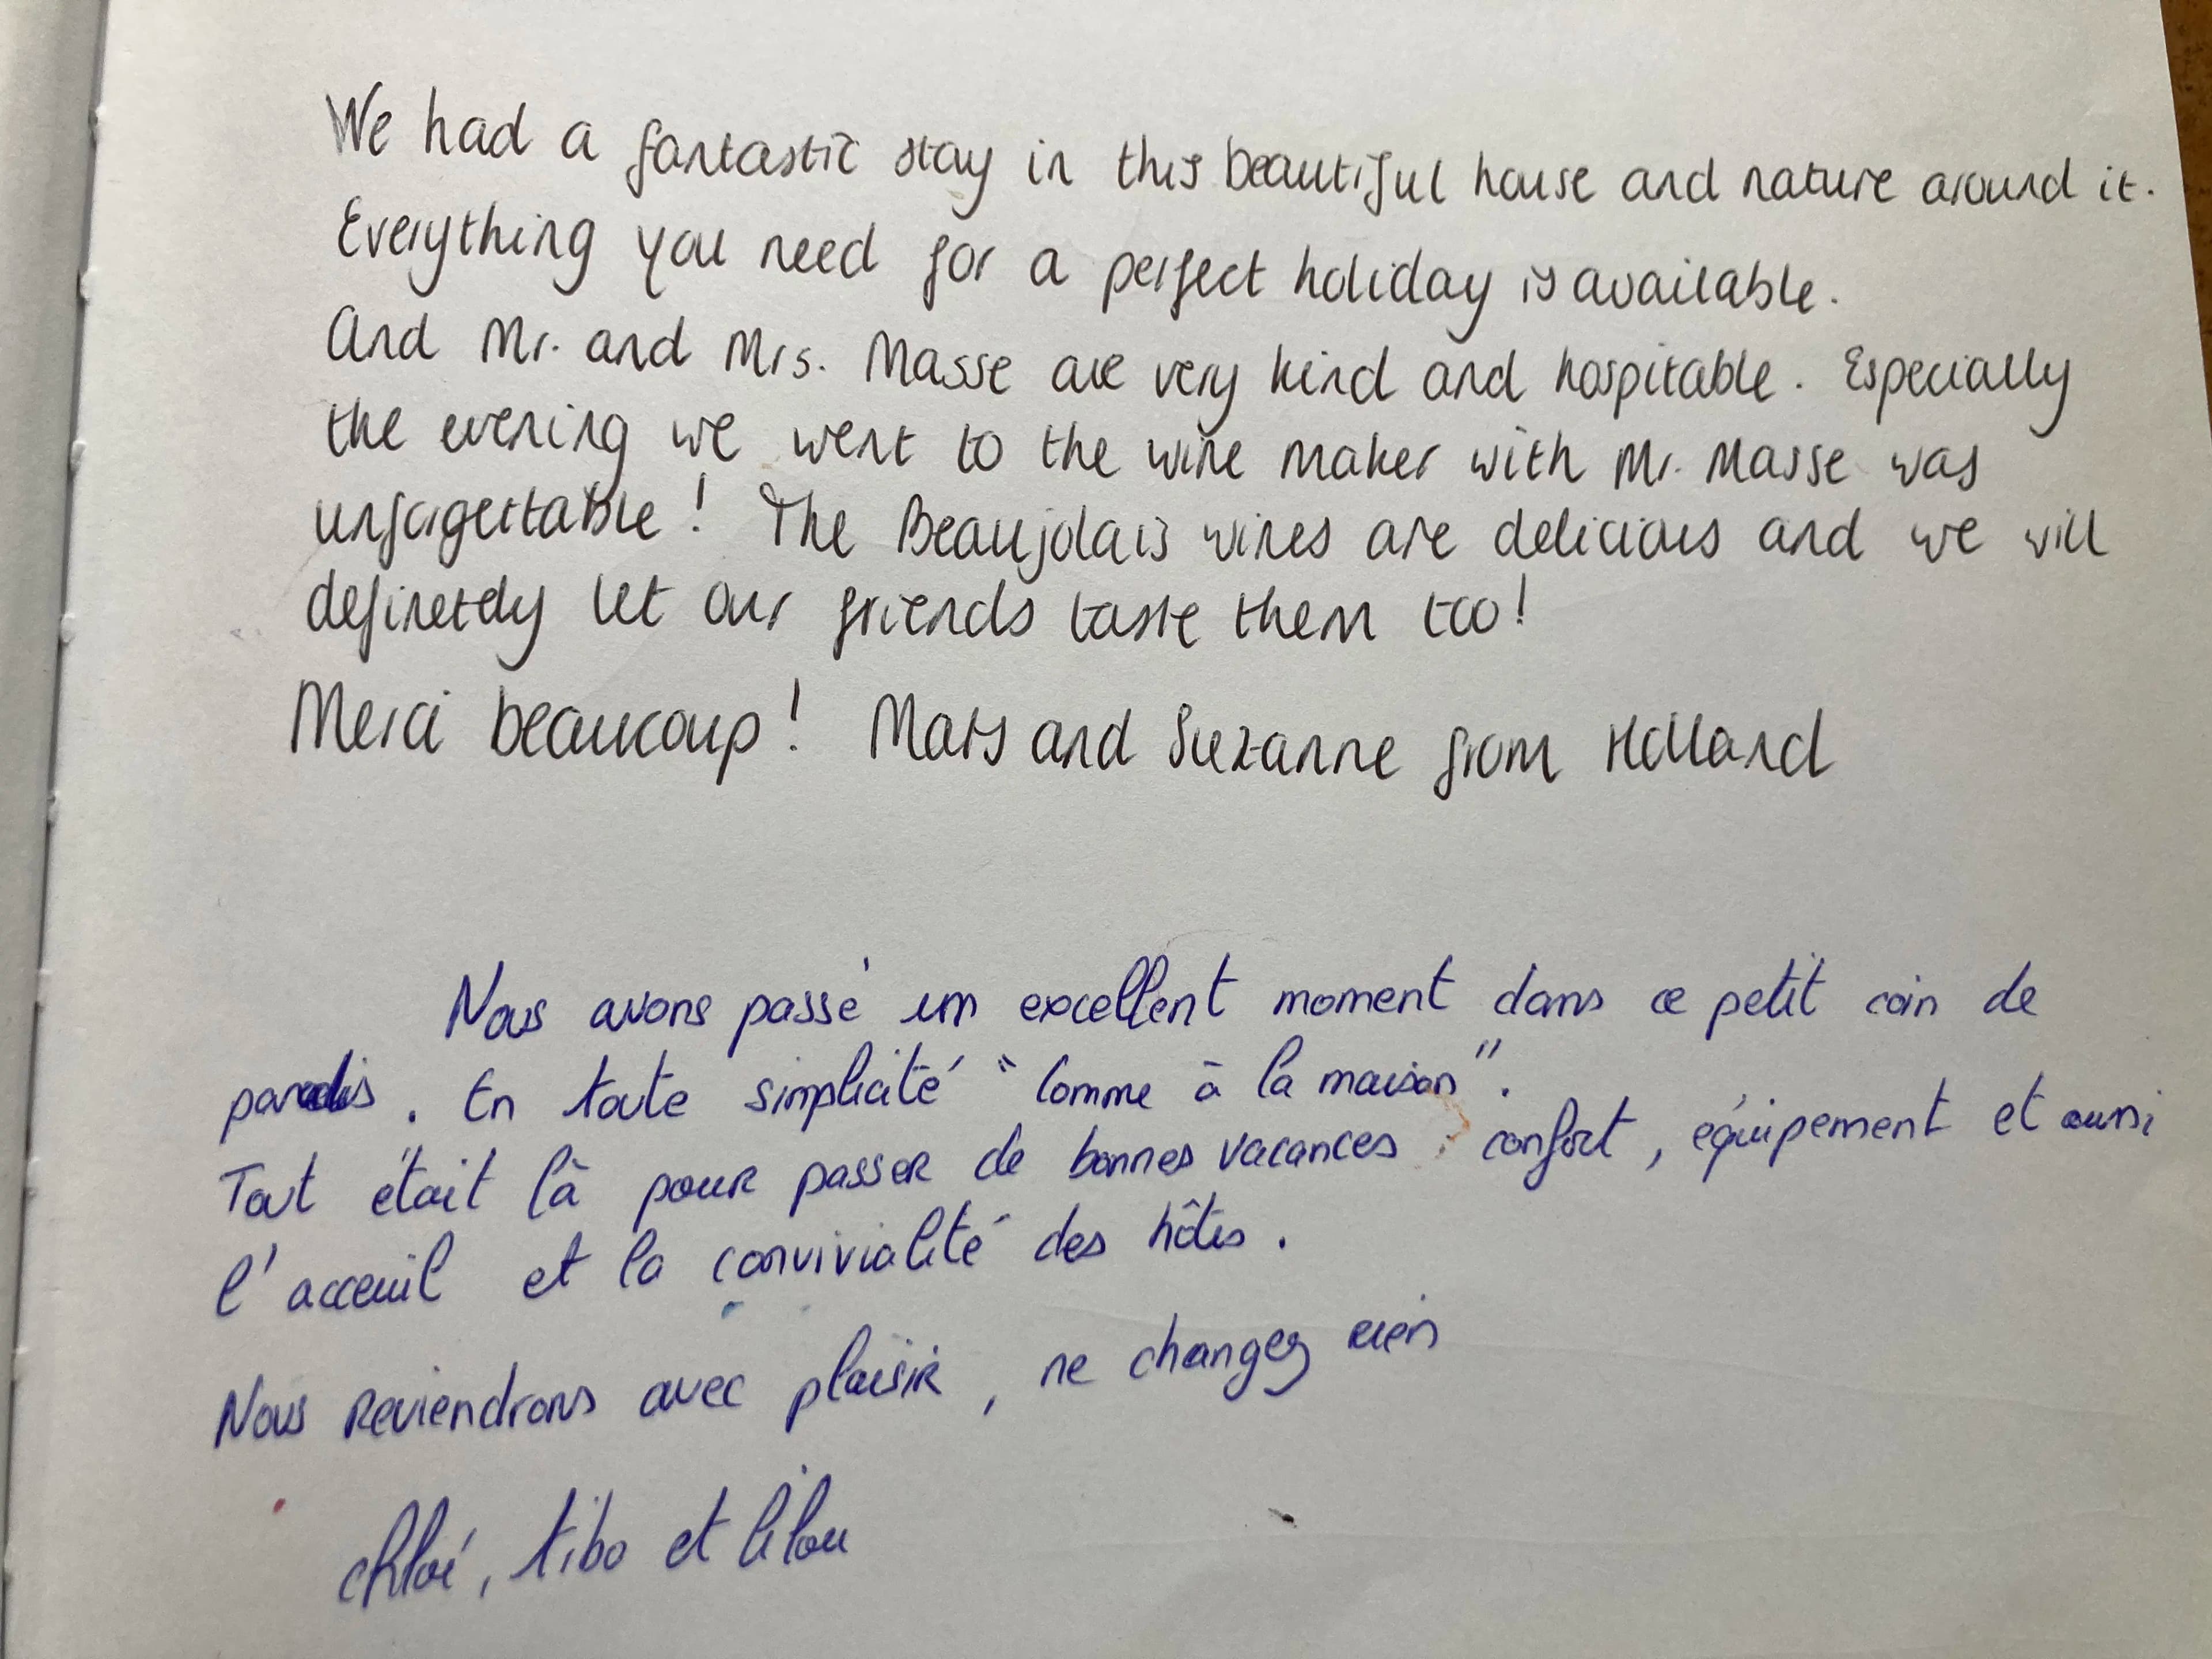 We had a fantastic stay in this beautiful house and nature around it.
Everything you need for a perfect holiday is available.
And Mr. and Mrs. Masse are very kind and hospitable. Especially
the evening we went to the wine maker with Mr. Masse was
unforgettable! The Beaujolais wines are delicious and we will
definetely let our friends taste them too!
Merci beaucoup! Mats and Suzanne from Holland
Nous avons passé un excellent moment dans ce petit coin de
paradis. En toute simplicité "comme à la maison".
Tout était là pour passer de bonnes vacances : confort, équipement et aussi
l'acceuil et la convivialité des hôtes.
Nous reviendrons avec plaisir, ne changez rien
chloé, tibo et lilou